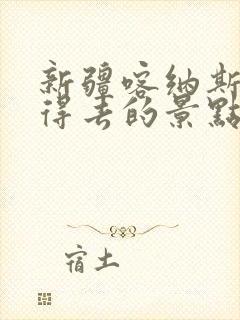 新疆喀納斯
得去的景點
宿土